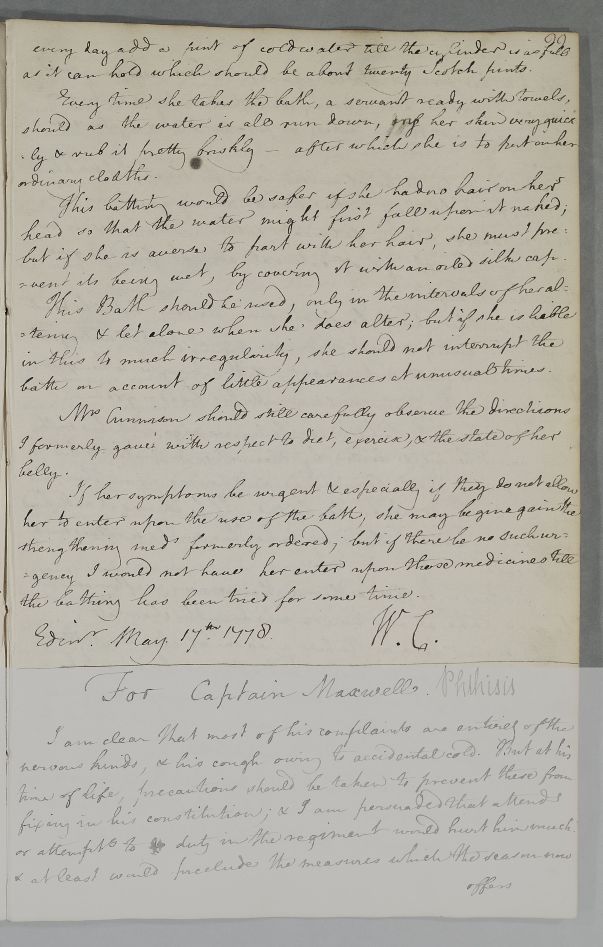 22
every day add a pint of cold water till the cylinder is as full
as it can hold which should be about twenty Scotch pints.
Every time she takes the bath, a servant ready with towels,
should as the water is all run down, her skin very quick
-ly & rub it pretty briskly — after which she is to put on her
ordinary cloaths.
This bathing would be safer if she had no hair on her
head so that the water might first fall upon it naked;
but if she is averse to part with her hair, she must pre:
=vent its being wet, by covering it with an oiled silk cap.
This Bath should be used, only in the intervals of her al=
=tering & let alone when she does alter; but if she is liable
in this to much irregularity, she should not interrupt the
bath on account of little appearances at unusual times.
Mrs Cunnison should still carefully observe the directions
I formerly gave with respect to diet, exercise, & the state of her
belly.
If her symptoms be urgent & especially if they do not allow
her to enter upon the use of the bath, she may begin again the
strengthening meds formerly ordered; but if there be no such ur=
=gency I would not have her enter upon these medicines till
the bathing has been tried for some time.
Edinr. May 17th 1778. W. C.
For Captain Maxwell. Phthisis
I am clear that most of his complaints are entirely of the
nervous kinds, & his cough owing to accidental cold. But at his
time of life, precautions should be taken to prevent these from
fixing in his constitution; & I am persuaded that attende
or attempte to duty in the regiment would hurt him much
& at least would preclude the measures which the season now
offers